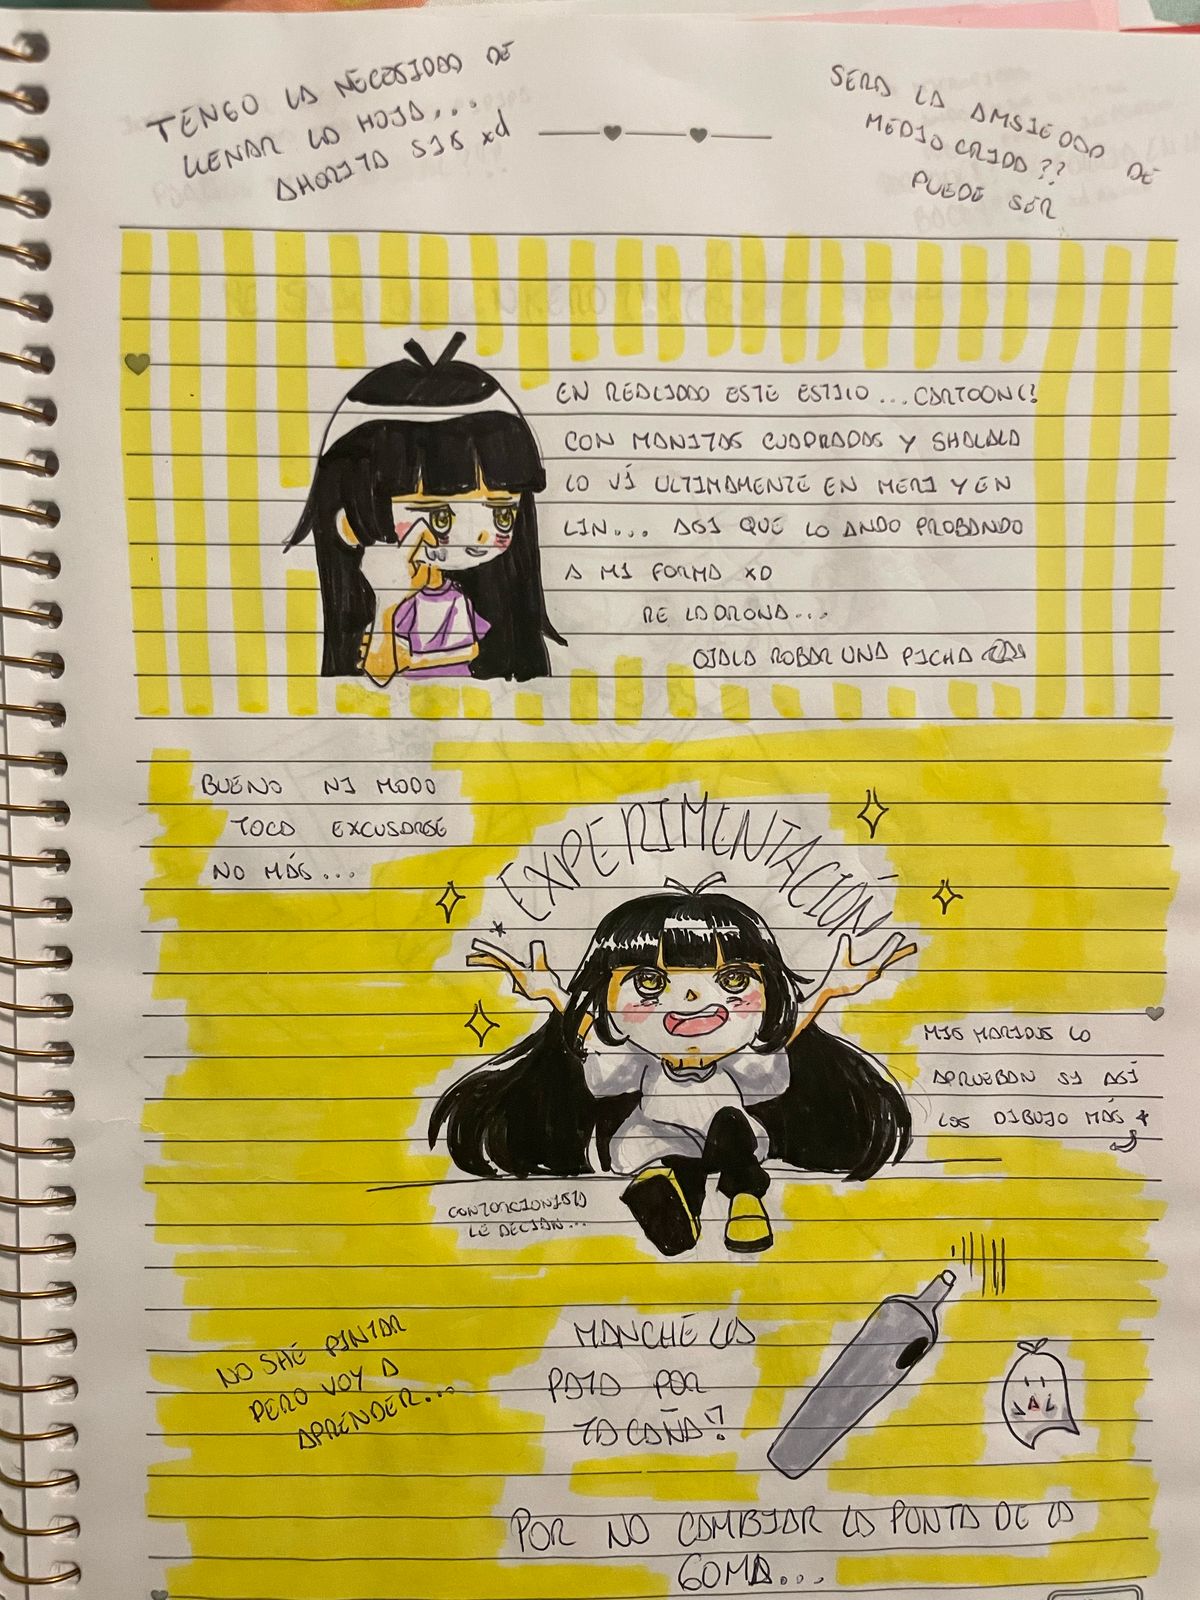 TENGO LA NECESIDAD DE
LLENAR LA HOJA...
AHORITA SIS xd
SERA LA ANSIEDAD DE
MEDIO CRIDA??
PUEDE SER
EN REALIDAD ESTE ESTILO ...CARTOON(?
CON MANITAS CUADRADAS Y SHALALA
LO VÍ ULTIMAMENTE EN MERI Y EN
LIN... ASI QUE LO ANDO PROBANDO
A MI FORMA XD
RE LADRONA...
OJALA ROBAR UNA PICHA
BUENO NI MODO
TOCA EXCUSARSE
NO MÁS...
*EXPERIMENTACIÓN
MIS MARIDOS LO
APRUEBAN SI ASÍ
LOS DIBUJO MÁS
CONTORCIONISTA
LE DECIAN...
NO SHÉ PINTAR
PERO VOY A
APRENDER...
MANCHÉ LA
PATA POR
TACAÑA!?
POR NO CAMBIAR LA PONTA DE LA
GOMA...